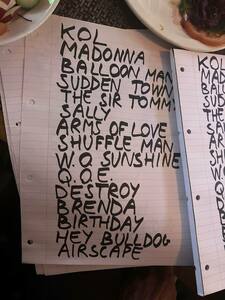 KOL
MADONNA
BALLOON MAN
SUDDEN TOWN
THE SIR TOMMY
SALLY
ARMS OF LOVE
SHUFFLE MAN
W.O. SUNSHINE
Q.O.E.
DESTROY
BRENDA
BIRTHDAY
HEY BULLDOG
AIRSCAPE
KOL
MAD
BALL
SUD
THE
SA
AR
SH
W.